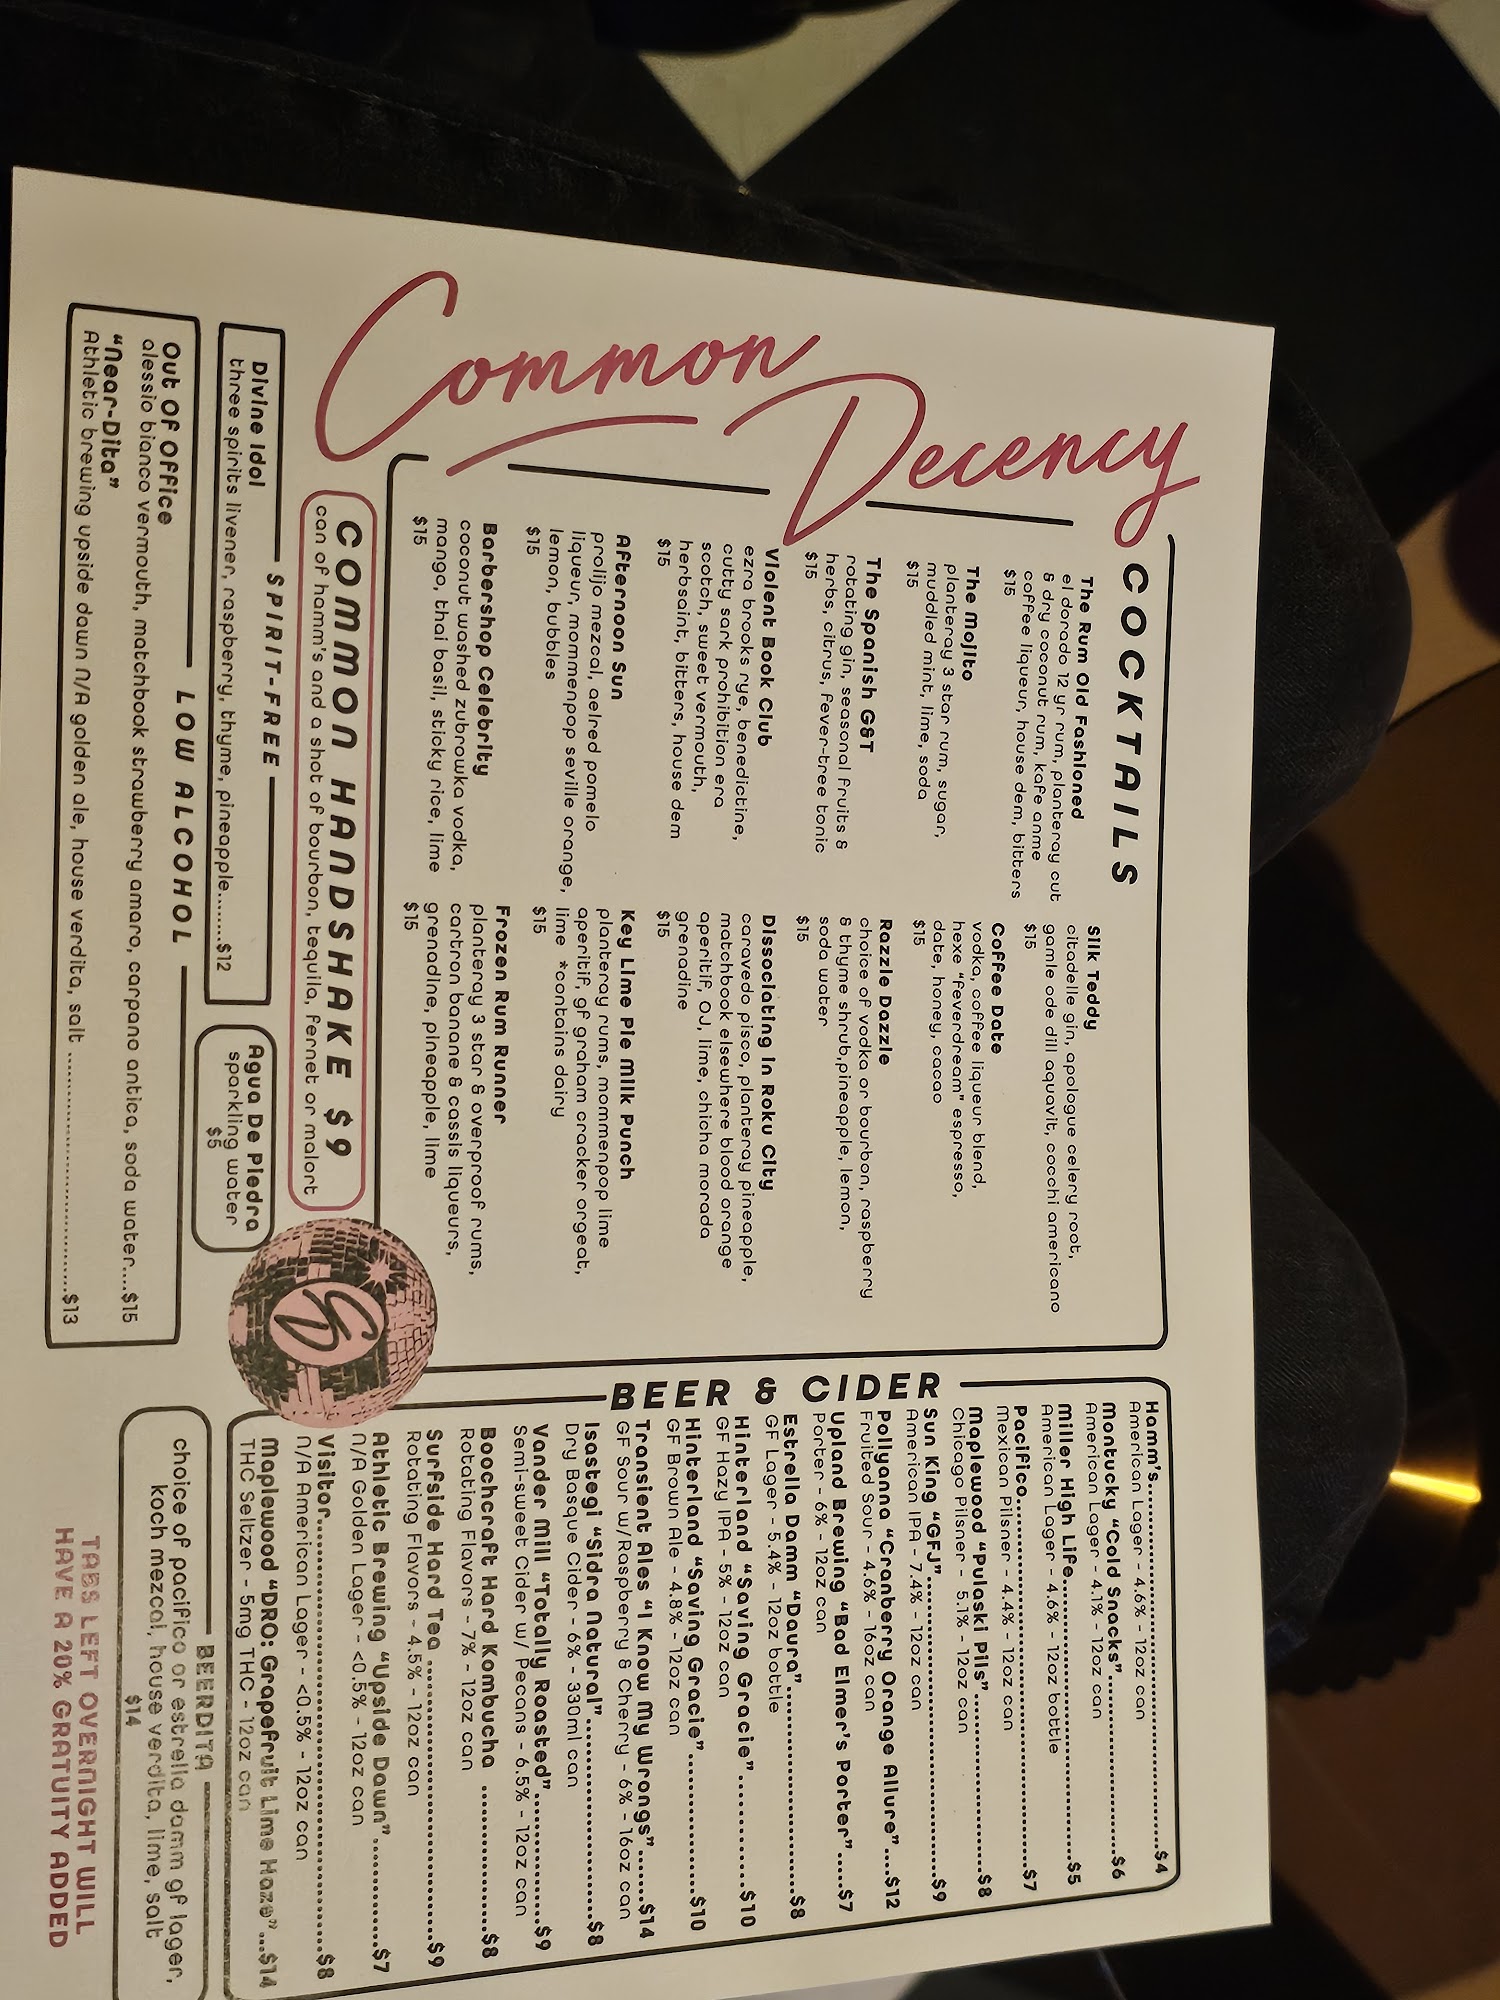 Common
Decency
COCKTAILS
The Rum Old Fashioned
el dorado 12 yr rum, planteray cut
& dry coconut rum, kafe anme
coffee liqueur, house dem, bitters
$15
The Mojito
planteray 3 star rum, sugar,
muddled mint, lime, soda
$15
The Spanish G&T
rotating gin, seasonal fruits &
herbs, citrus, fever-tree tonic
$15
Violent Book Club
ezra brooks rye, benedictine,
cutty sark prohibition era
scotch, sweet vermouth,
herbsaint, bitters, house dem
$15
Afternoon Sun
prolijo mezcal, aelred pomelo
liqueur, mommenpop seville orange,
lemon, bubbles
$15
Barbershop Celebrity
coconut washed zubrowka vodka,
mango, thai basil, sticky rice, lime
$15
Silk Teddy
citadelle gin, apologue celery root,
gamle ode dill aquavit, cocchi americano
$15
Coffee Date
vodka, coffee liqueur blend,
hexe "feverdream" espresso,
date, honey, cacao
$15
Razzle Dazzle
choice of vodka or bourbon, raspberry
& thyme shrub,pineapple, lemon,
soda water
$15
Dissociating In Roku City
caravedo pisco, planteray pineapple,
matchbook elsewhere blood orange
aperitif, OJ, lime, chicha morada
grenadine
$15
Key Lime Pie Milk Punch
planteray rums, mommenpop lime
aperitif, gf graham cracker orgeat,
lime *contains dairy
$15
Frozen Rum Runner
planteray 3 star & overproof rums,
cartron banane & cassis liqueurs,
grenadine, pineapple, lime
$15
COMMON HANDSHAKE $9
can of hamm's and a shot of bourbon, tequila, fernet or malort
SPIRIT-FREE
Divine Idol
three spirits livener, raspberry, thyme, pineapple........$12
Agua De Piedra
sparkling water
$5
LOW ALCOHOL
Out Of Office
alessio bianco vermouth, matchbook strawberry amaro, carpano antica, soda water....$15
"Near-Dita"
Athletic brewing upside dawn N/A golden ale, house verdita, salt ................................$13
BEER & CIDER
Hamm's..........................................................$4
American Lager - 4.6% - 12oz can
Montucky "Cold Snacks"............................$6
American Lager - 4.1% - 12oz can
Miller High Life............................................$5
American Lager - 4.6% - 12oz bottle
Pacifico..........................................................$7
Mexican Pilsner - 4.4% - 12oz can
Maplewood "Pulaski Pils"..........................$8
Chicago Pilsner - 5.1% - 12oz can
Sun King "GFJ"..............................................$9
American IPA - 7.4% - 12oz can
Pollyanna "Cranberry Orange Allure"....$12
Fruited Sour - 4.6% - 16oz can
Upland Brewing "Bad Elmer's Porter".....$7
Porter - 6% - 12oz can
Estrella Damm "Daura"...............................$8
GF Lager - 5.4% - 12oz bottle
Hinterland "Saving Gracie"...........$10
GF Hazy IPA - 5% - 12oz can
Hinterland "Saving Gracie"....................$10
GF Brown Ale - 4.8% - 12oz can
Transient Ales "I Know My Wrongs".......$14
GF Sour w/Raspberry & Cherry - 6% - 16oz can
Isastegi "Sidra Natural"............................$8
Dry Basque Cider - 6% - 330ml can
Vander Mill "Totally Roasted"..................$9
Semi-sweet Cider w/ Pecans - 6.5% - 12oz can
Boochcraft Hard Kombucha ...................$8
Rotating Flavors - 7% - 12oz can
Surfside Hard Tea ......................................$9
Rotating Flavors - 4.5% - 12oz can
Athletic Brewing "Upside Dawn"..............$7
N/A Golden Lager - <0.5% - 12oz can
Visitor............................................................$8
N/A American Lager - <0.5% - 12oz can
Maplewood "DRO: Grapefruit Lime Haze"...$14
THC Seltzer - 5mg THC - 12oz can
BEERDITA
choice of pacifico or estrella damm gf lager,
koch mezcal, house verdita, lime, salt
$14
TABS LEFT OVERNIGHT WILL
HAVE A 20% GRATUITY ADDED